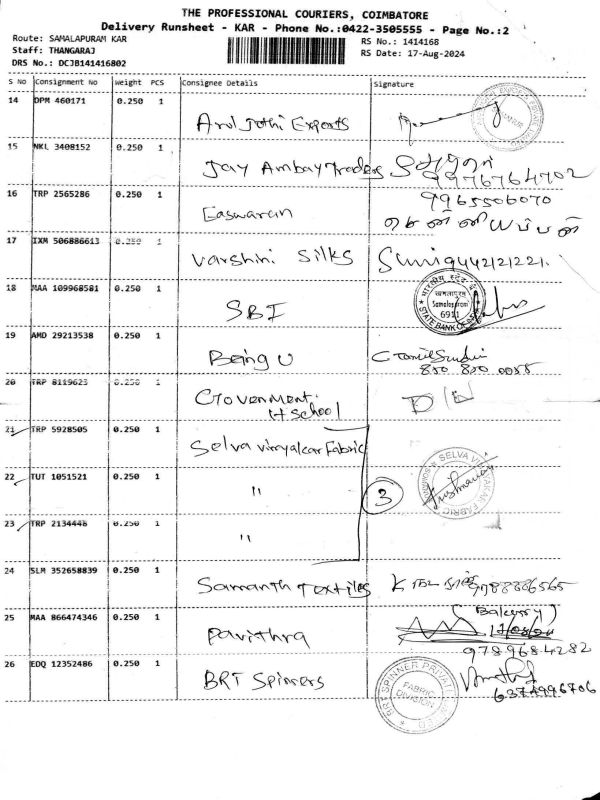 THE PROFESSIONAL COURIERS, COIMBATORE
Delivery Runsheet - KAR - Phone No.:0422-3505555 - Page No.:2
Route: SAMALAPURAM KAR
Staff: THANGARAJ
DRS No.: DCJB141416802
RS No.: 1414168
RS Date: 17-Aug-2024
S No Consignment No Weight PCS Consignee Details Signature
14 DPM 460171 0.250 1 Arul Jothi Exports
15 NKL 3408152 0.250 1 Jay Ambay Traders
9976764702
16 TRP 2565286 0.250 1 Easwaran 9965506070
சென்னியப்பன்
17 IXM 506886613 0.250 1 Varshini Silks 9442121221
18 MAA 109968581 0.250 1 SBI
Samalapuram
STATE BANK OF INDIA
19 AMD 29213538 0.250 1 Being U
850 850 0055
20 TRP 8119623 0.250 1 Government.
H School D/N
21 TRP 5928505 0.250 1 Selva vinayakar Fabric
22 TUT 1051521 0.250 1 "
3
SELVA VINAYAKAR FABRIC
23 TRP 2134448 0.250 1 "
24 SLM 352658839 0.250 1 Samanth Textiles 9788886565
25 MAA 866474346 0.250 1 Pavithra
(Bakery)
17/08/24
9789684282
26 EDQ 12352486 0.250 1 BRT Spinners
6374996706
BRT SPINNER PRIVATE LIMITED
FABRIC
DIVISION